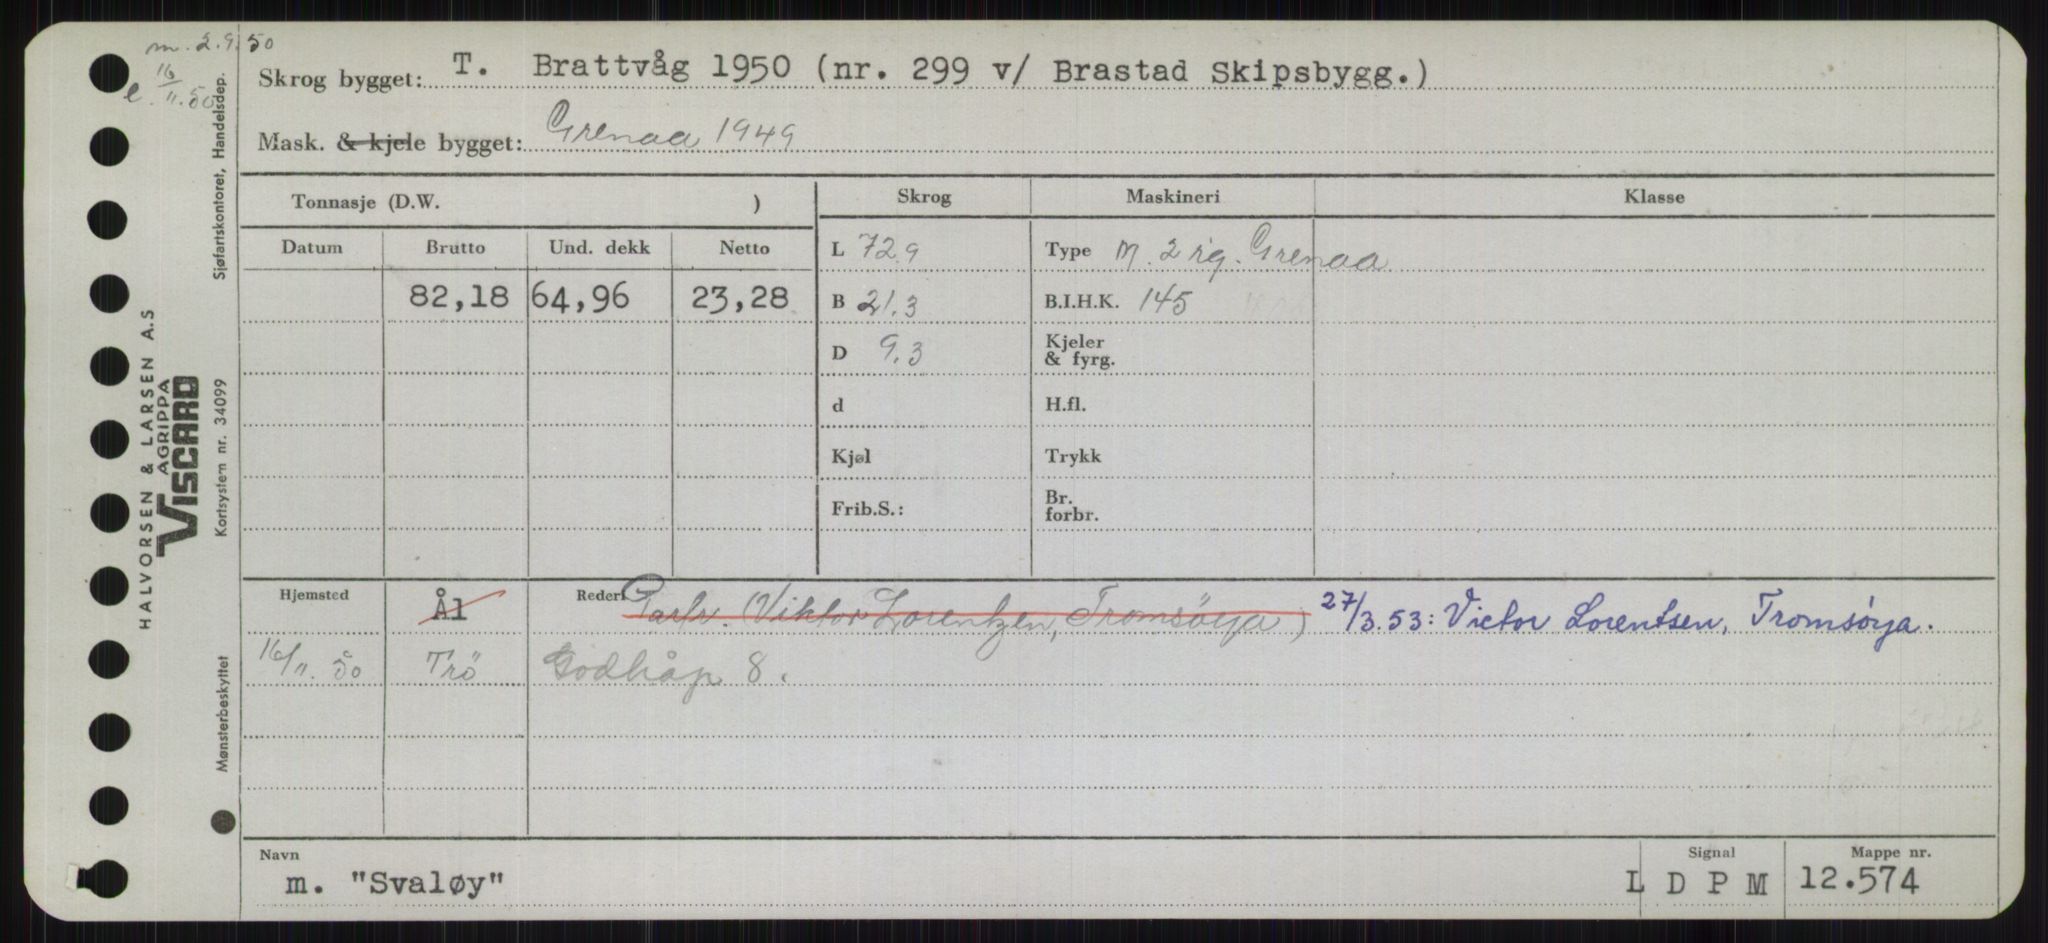 m. 2.9.50
16/11.50
Skrog bygget: T. Brattvåg 1950 (nr. 299 v/ Brastad Skipsbygg.)
Mask. & kjele bygget: Grenaa 1949
Tonnasje (D.W. )
Skrog
Maskineri
Klasse
Datum
Brutto
Und. dekk
Netto
82,18
64,96
23,28
L 72.9
B 21.3
D 9.3
d
Kjøl
Frib.S.:
Type M. 2 syl. Grenaa
B.I.H.K. 145
Kjeler
& fyrg.
H.fl.
Trykk
Br.
forbr.
Hjemsted
Ål
Rederi Partr. (Viktor Lorentzen, Tromsøysa)
27/3.53: Victor Lorentsen, Tromsøya.
16/11.50
Trö
Godhåp 8.
Navn
m. "Svaløy"
Signal
L D P M
Mappe nr.
12.574
HALVORSEN & LARSEN A.S
AGRIPPA
VISCARD
Sjøfartskontoret, Handelsdep.
Kortsystem nr. 34099
Mønsterbeskyttet